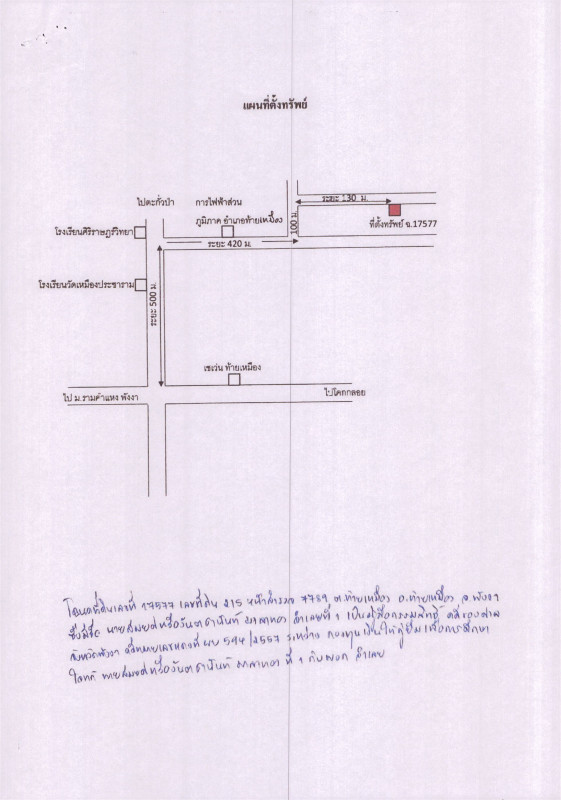 แผนที่ตั้งทรัพย์
ไปตะกั่วป่า
การไฟฟ้าส่วน
ภูมิภาค อำเภอท้ายเหมือง
ระยะ 130 ม.
ที่ตั้งทรัพย์ ฉ.17577
โรงเรียนศิริราษฎร์วิทยา
ระยะ 420 ม.
100 ม.
โรงเรียนวัดเหมืองประชาราม
ระยะ 500 ม.
เซเว่น ท้ายเหมือง
ไป ม.รามคำแหง พังงา
ไปโคกกลอย
โฉนดที่ดินเลขที่ 17577 เลขที่ดิน 215 หน้าสำรวจ 7739 ต.ท้ายเหมือง อ.ท้ายเหมือง จ.พังงา
ซึ่งมีชื่อ นาย หรือ จำเลยที่ 1 เป็นผู้ถือกรรมสิทธิ์ คดีของศาล
จังหวัดพังงา คดีหมายเลขแดงที่ ผบ 544/2557 ระหว่าง กองทุนเงินให้กู้ยืมเพื่อการศึกษา
โจทก์ นาย หรือ ที่ 1 กับพวก จำเลย